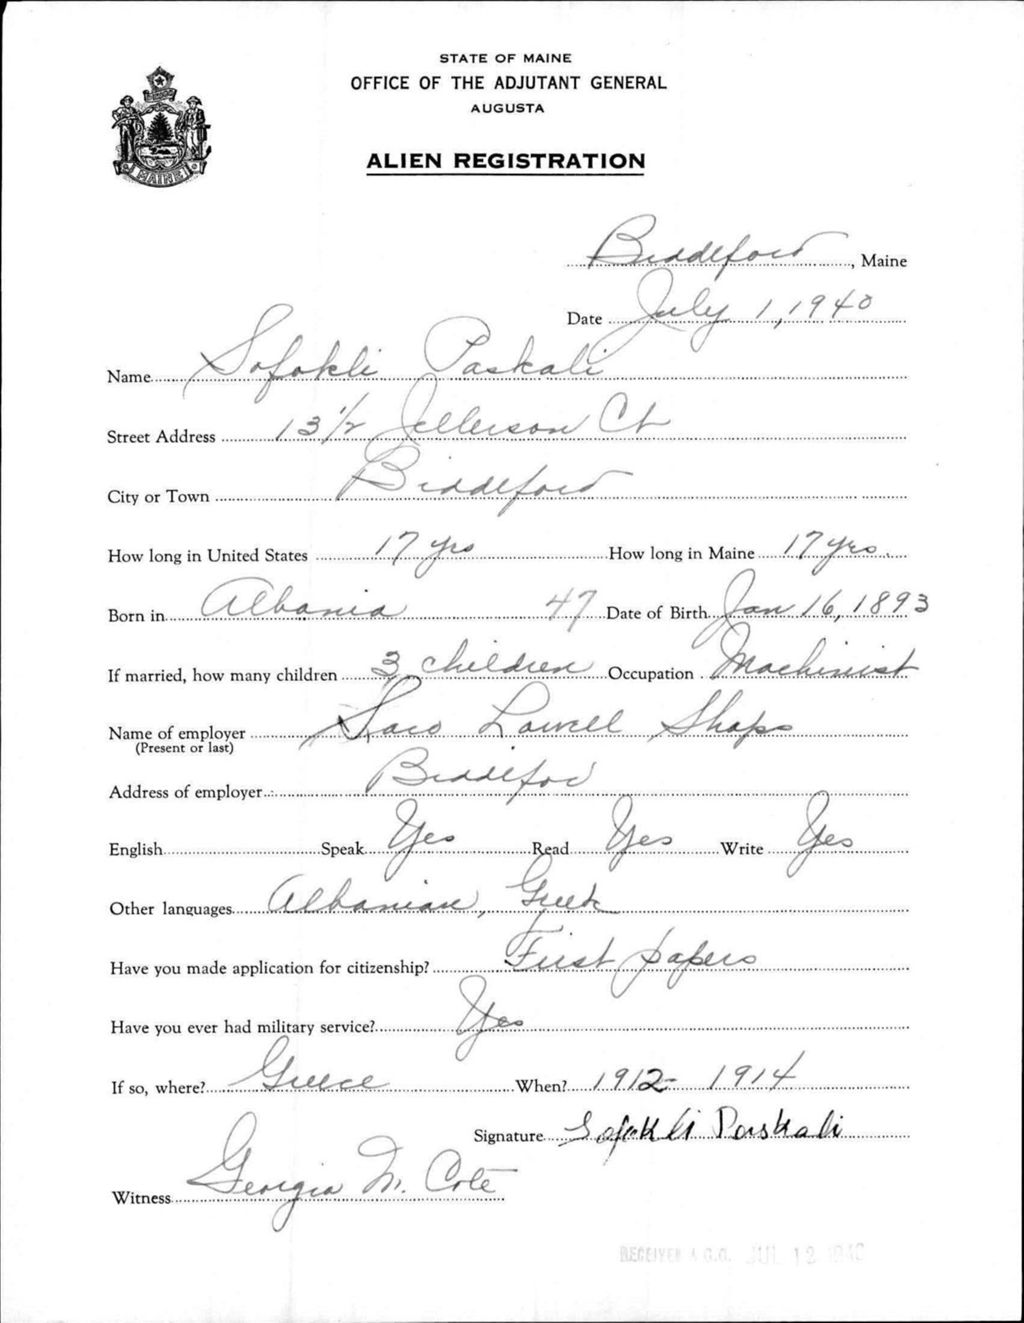 STATE OF MAINE
OFFICE OF THE ADJUTANT GENERAL
AUGUSTA
MAINE
ALIEN REGISTRATION
Biddeford, Maine
Date July 1, 1940
Name Sofokli Paskali
Street Address 13 1/2 Jefferson Ct
City or Town Biddeford
How long in United States 17 yrs How long in Maine 17 yrs.
Born in Albania 47 Date of Birth Jan 16, 1893
If married, how many children 3 children Occupation Machinist
Name of employer Saco Lowell Shops
(Present or last)
Address of employer Biddefor
English Speak Yes Read Yes Write Yes
Other languages Albanian, Greek
Have you made application for citizenship? First papers
Have you ever had military service? Yes
If so, where? Greece When? 1912 - 1914
Signature Sofokli Paskali
Witness Georgia M. Cote
RECEIVED A.G.O. JUL 12 1940